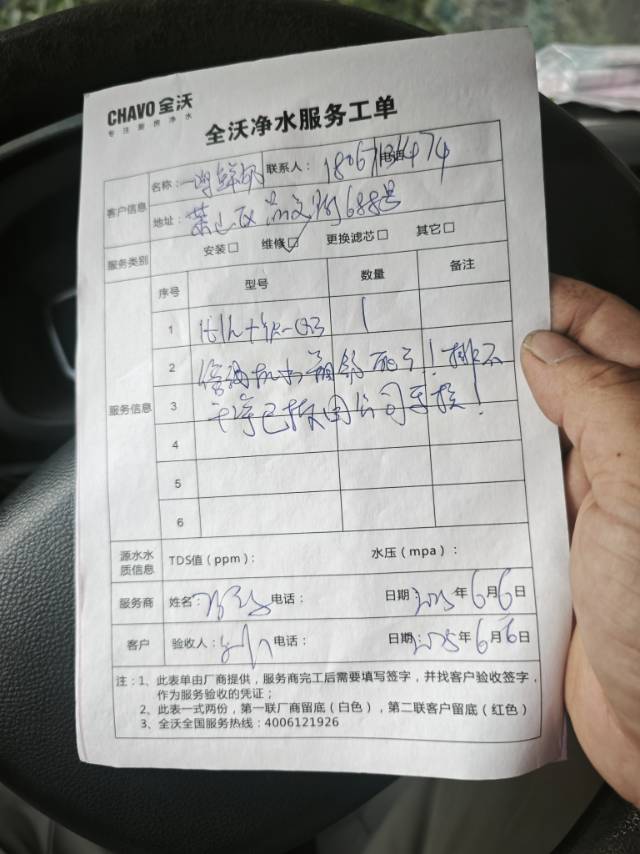 CHAVO 全沃
专注厨房净水
全沃净水服务工单
客户信息
名称: 鲜 联系人: 电话
地址: 萧山区 688号
服务类别 安装□ 维修☑ 更换滤芯□ 其它□
服务信息
序号 型号 数量 备注
1 1
2 ! 排不
3 干净已 公司 !
4
5
6
源水水质信息 TDS值(ppm): 水压(mpa):
服务商 姓名: 电话: 日期: 2025年6月6日
客户 验收人: 电话: 日期: 2025年6月6日
注:1、此表单由厂商提供,服务商完工后需要填写签字,并找客户验收签字,
作为服务验收的凭证;
2、此表一式两份,第一联厂商留底(白色),第二联客户留底(红色)
3、全沃全国服务热线:4006121926